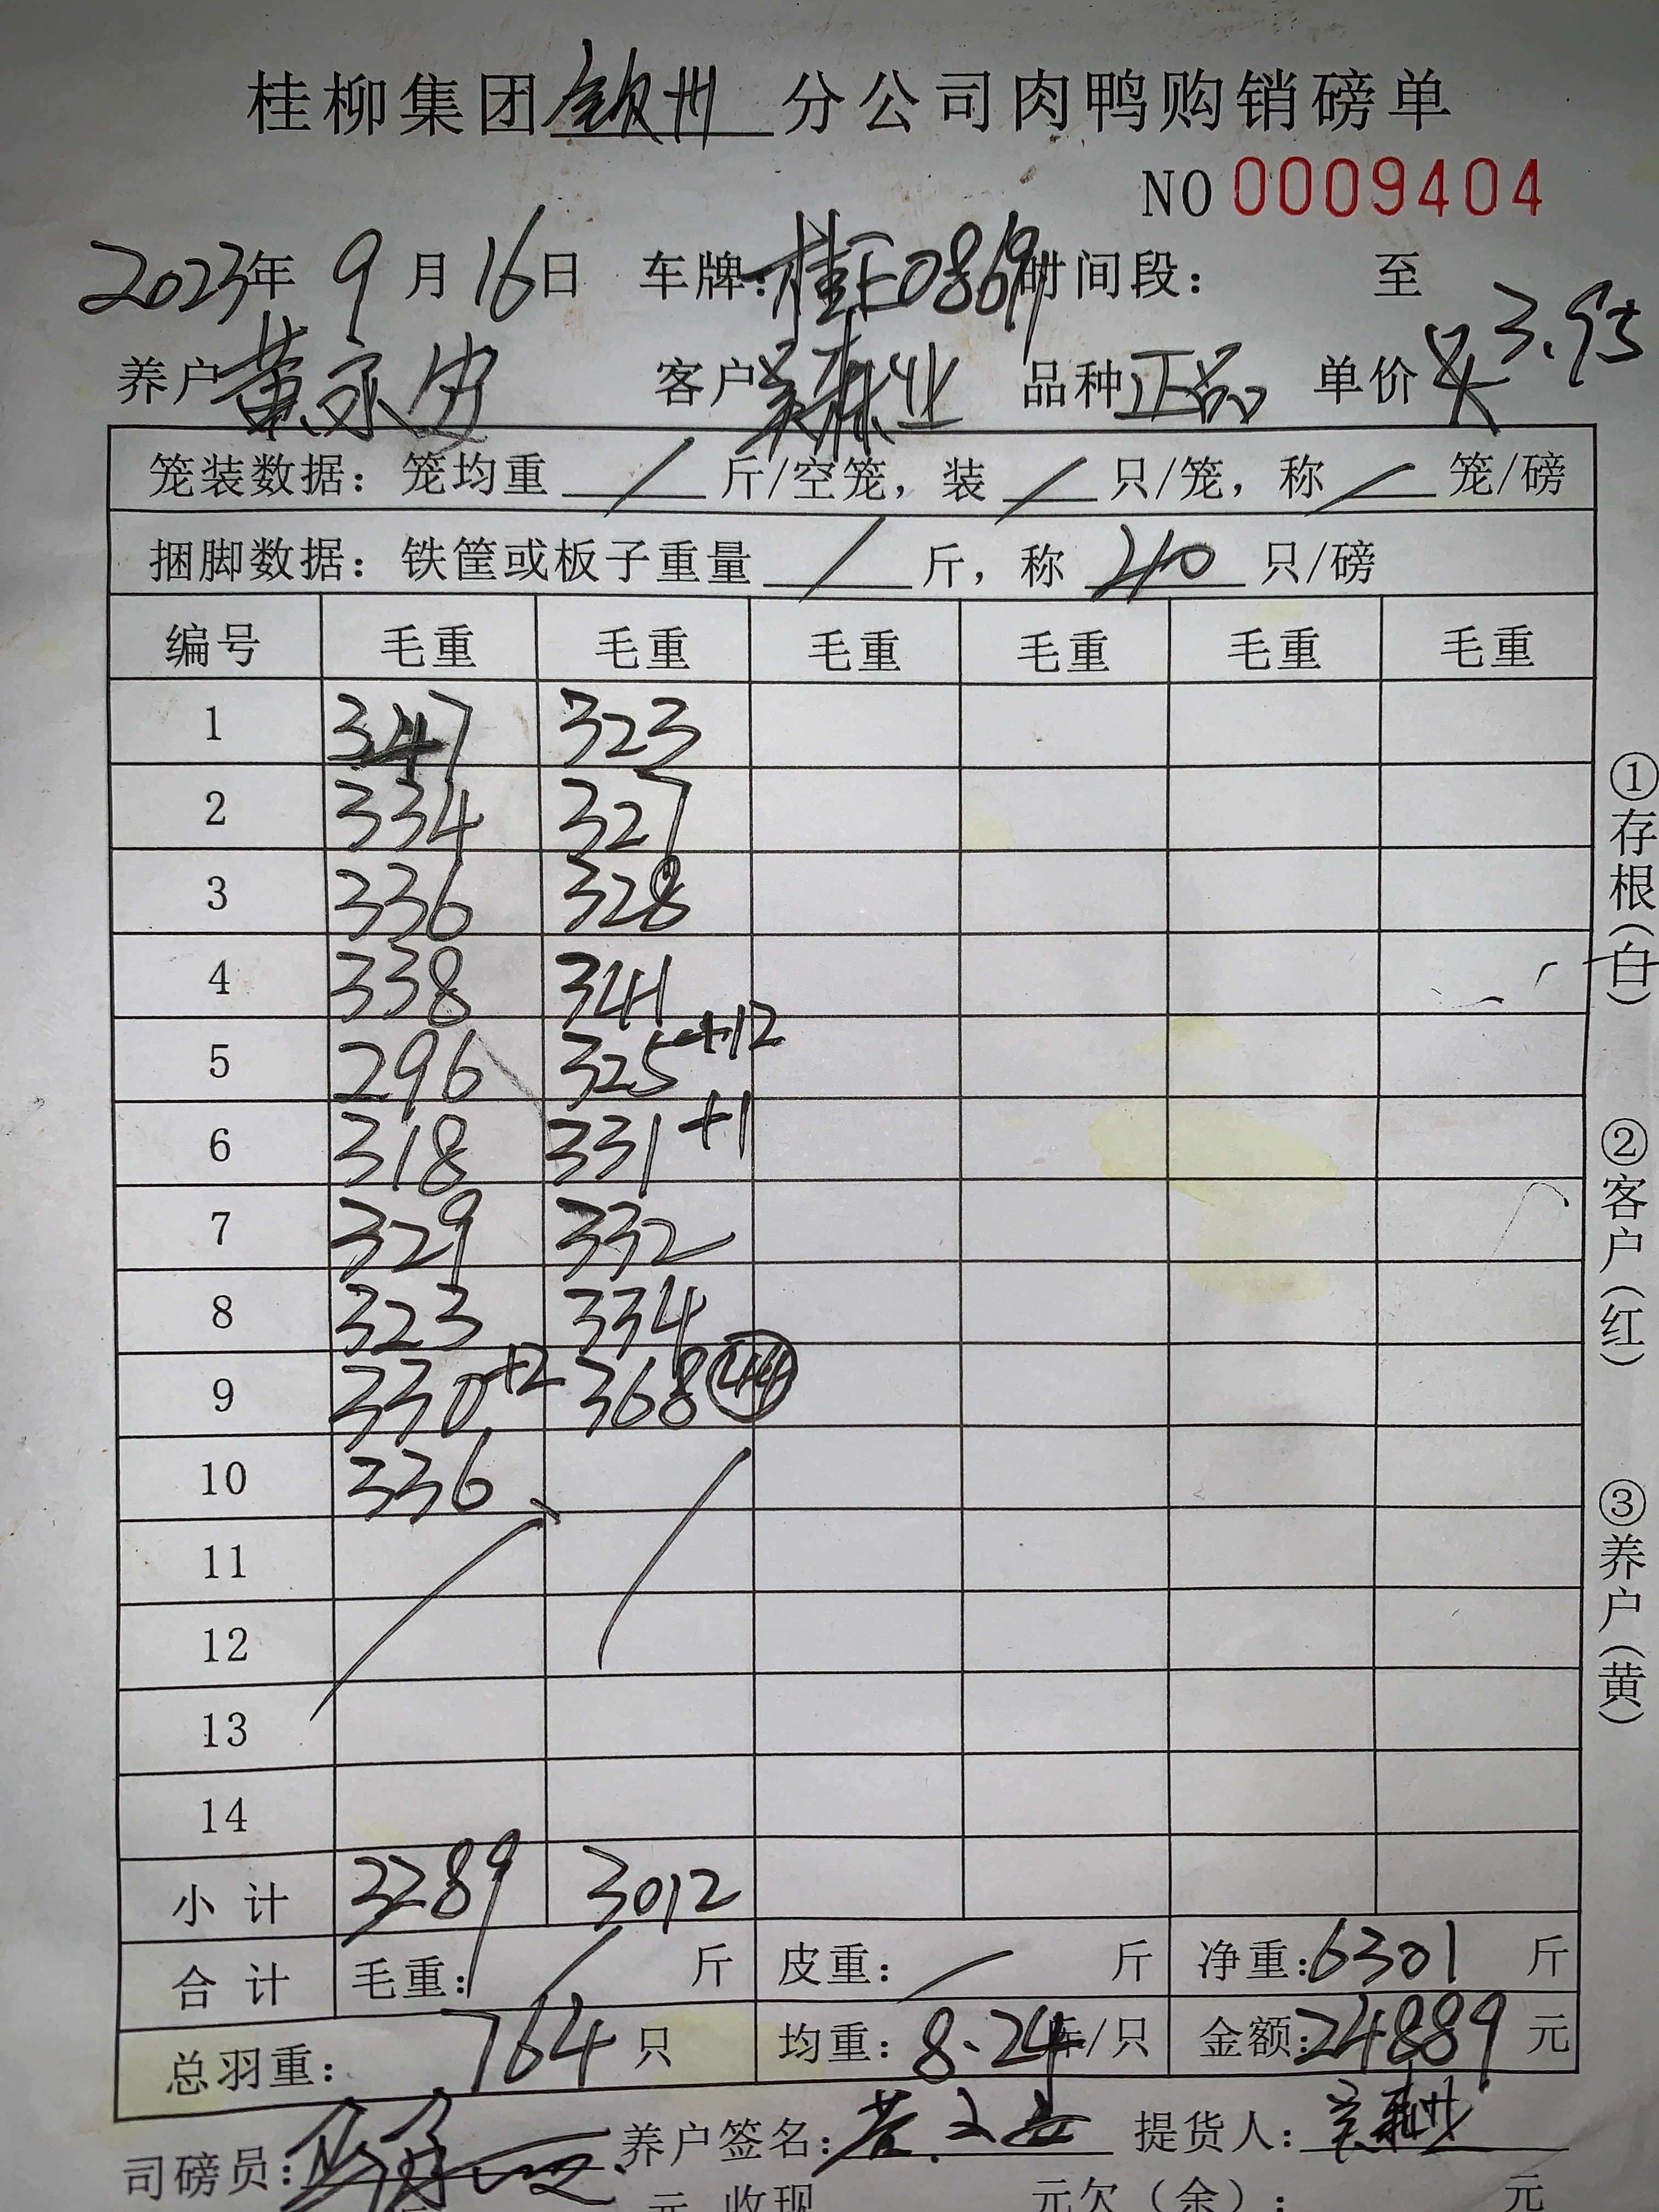 桂柳集团钦州分公司肉鸭购销磅单
NO 0009404
2023年 9 月 16日 车牌:桂E0869 时间段: 至
养户 黄永安 客户 吴森业 品种 正品 单价 3.95
笼装数据: 笼均重 / 斤/空笼, 装 / 只/笼, 称 / 笼/磅
捆脚数据: 铁筐或板子重量 / 斤, 称 40 只/磅
编号 毛重 毛重 毛重 毛重 毛重 毛重
1 347 323
2 334 327
3 336 328
4 338 341
5 296 325 +12
6 318 331 +1
7 329 332
8 323 334
9 330 +2 368 44
10 336
11
12
13
14
小计 3289 3012
合计 毛重: / 斤 皮重: / 斤 净重:6301 斤
总羽重: 764 只 均重:8.24斤/只 金额:24889 元
司磅员: 养户签名: 提货人:吴森业
元 收现 元欠(余): 元
①存根(白)
②客户(红)
③养户(黄)